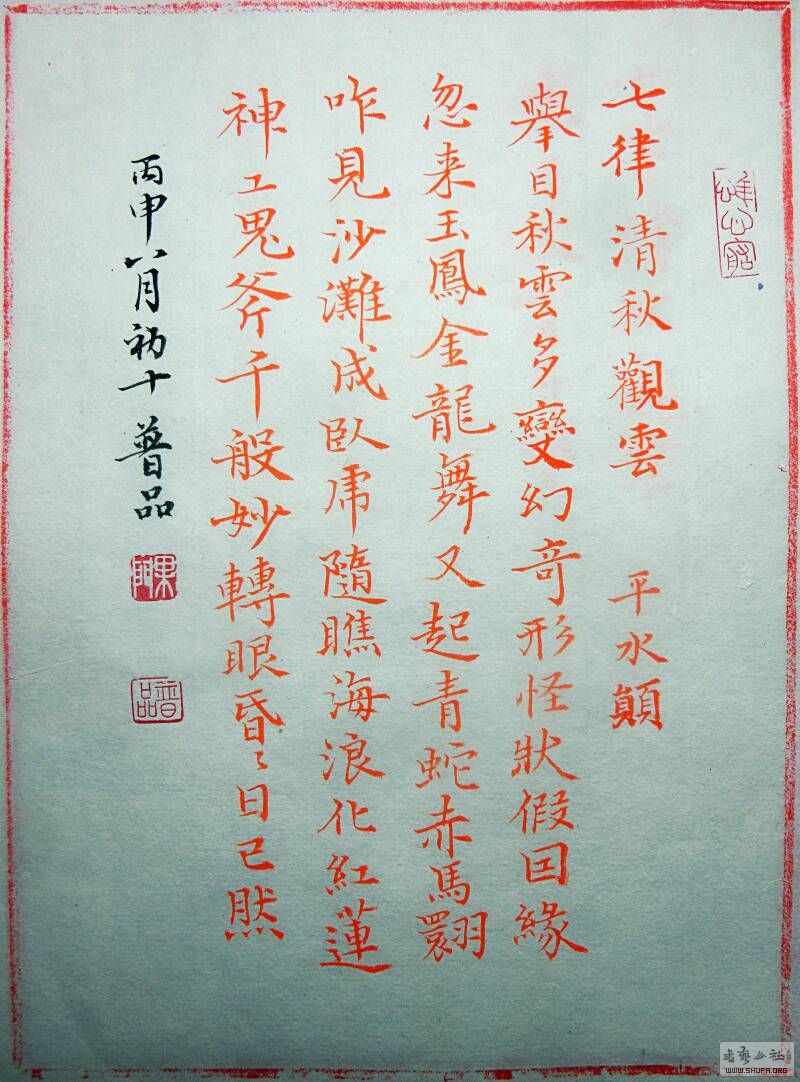 七律清秋觀雲 平水顛
舉目秋雲多變幻奇形怪狀假囙緣
忽来玉鳳金龍舞又起青蛇赤馬翾
咋見沙灘成臥虎隨瞧海浪化紅蓮
神工鬼斧千般妙轉眼昏〻日已然
丙申八月初十普品
普品
WWW.SHUFA.ORG